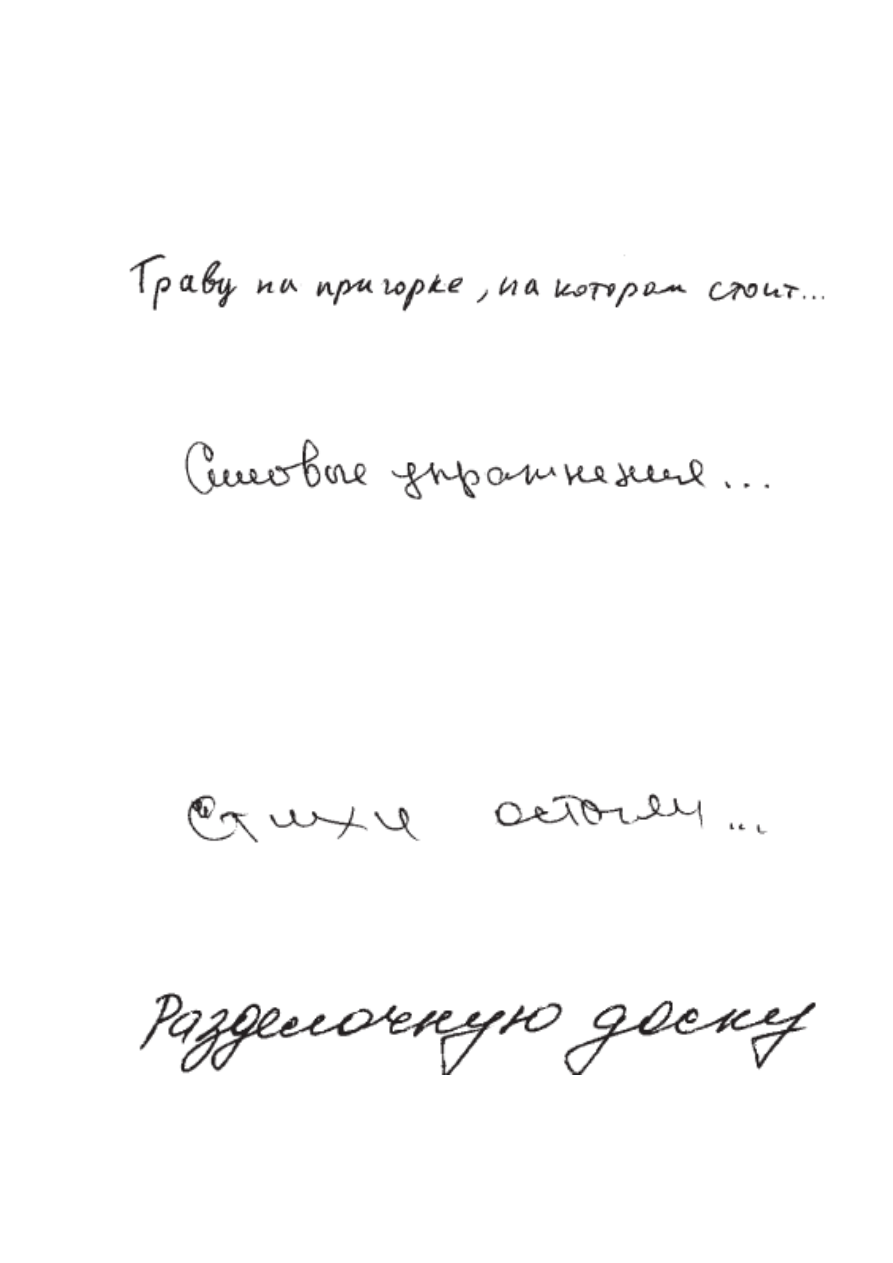 Траву на пригорке, на котором стоит...
Силовые упражнения...
Стихи
Разделочную доску